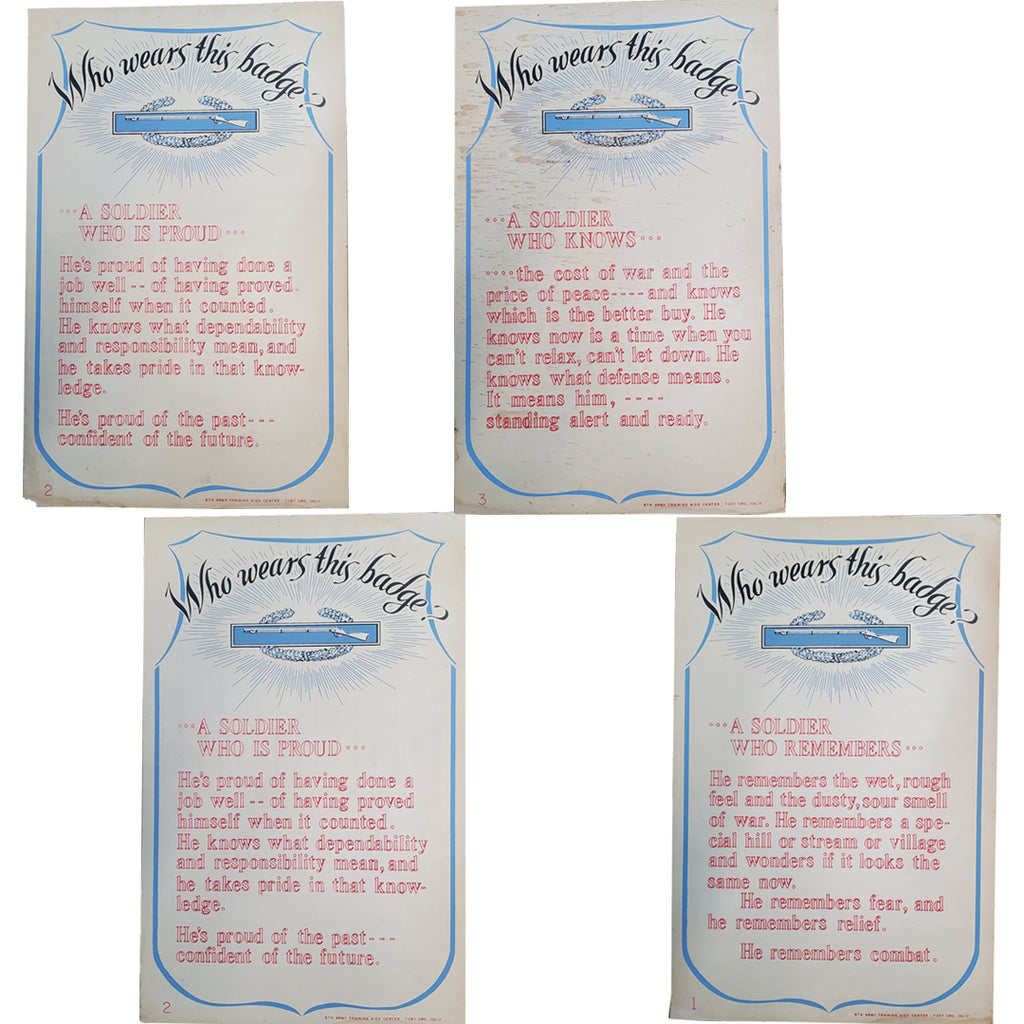 Who wears this badge?
···A SOLDIER
WHO IS PROUD···
He's proud of having done a
job well -- of having proved
himself when it counted.
He knows what dependability
and responsibility mean, and
he takes pride in that know-
ledge.
He's proud of the past---
confident of the future.
2
6TH ARMY TRAINING AIDS CENTER · FORT ORD, CALIF.
Who wears this badge?
···A SOLDIER
WHO KNOWS···
----the cost of war and the
price of peace----and knows
which is the better buy. He
knows now is a time when you
can't relax, can't let down. He
knows what defense means.
It means him, ----
standing alert and ready.
3
6TH ARMY TRAINING AIDS CENTER · FORT ORD, CALIF.
Who wears this badge?
···A SOLDIER
WHO IS PROUD···
He's proud of having done a
job well -- of having proved
himself when it counted.
He knows what dependability
and responsibility mean, and
he takes pride in that know-
ledge.
He's proud of the past---
confident of the future.
2
6TH ARMY TRAINING AIDS CENTER · FORT ORD, CALIF.
Who wears this badge?
···A SOLDIER
WHO REMEMBERS···
He remembers the wet, rough
feel and the dusty, sour smell
of war. He remembers a spe-
cial hill or stream or village
and wonders if it looks the
same now.
He remembers fear, and
he remembers relief.
He remembers combat.
1
6TH ARMY TRAINING AIDS CENTER · FORT ORD, CALIF.